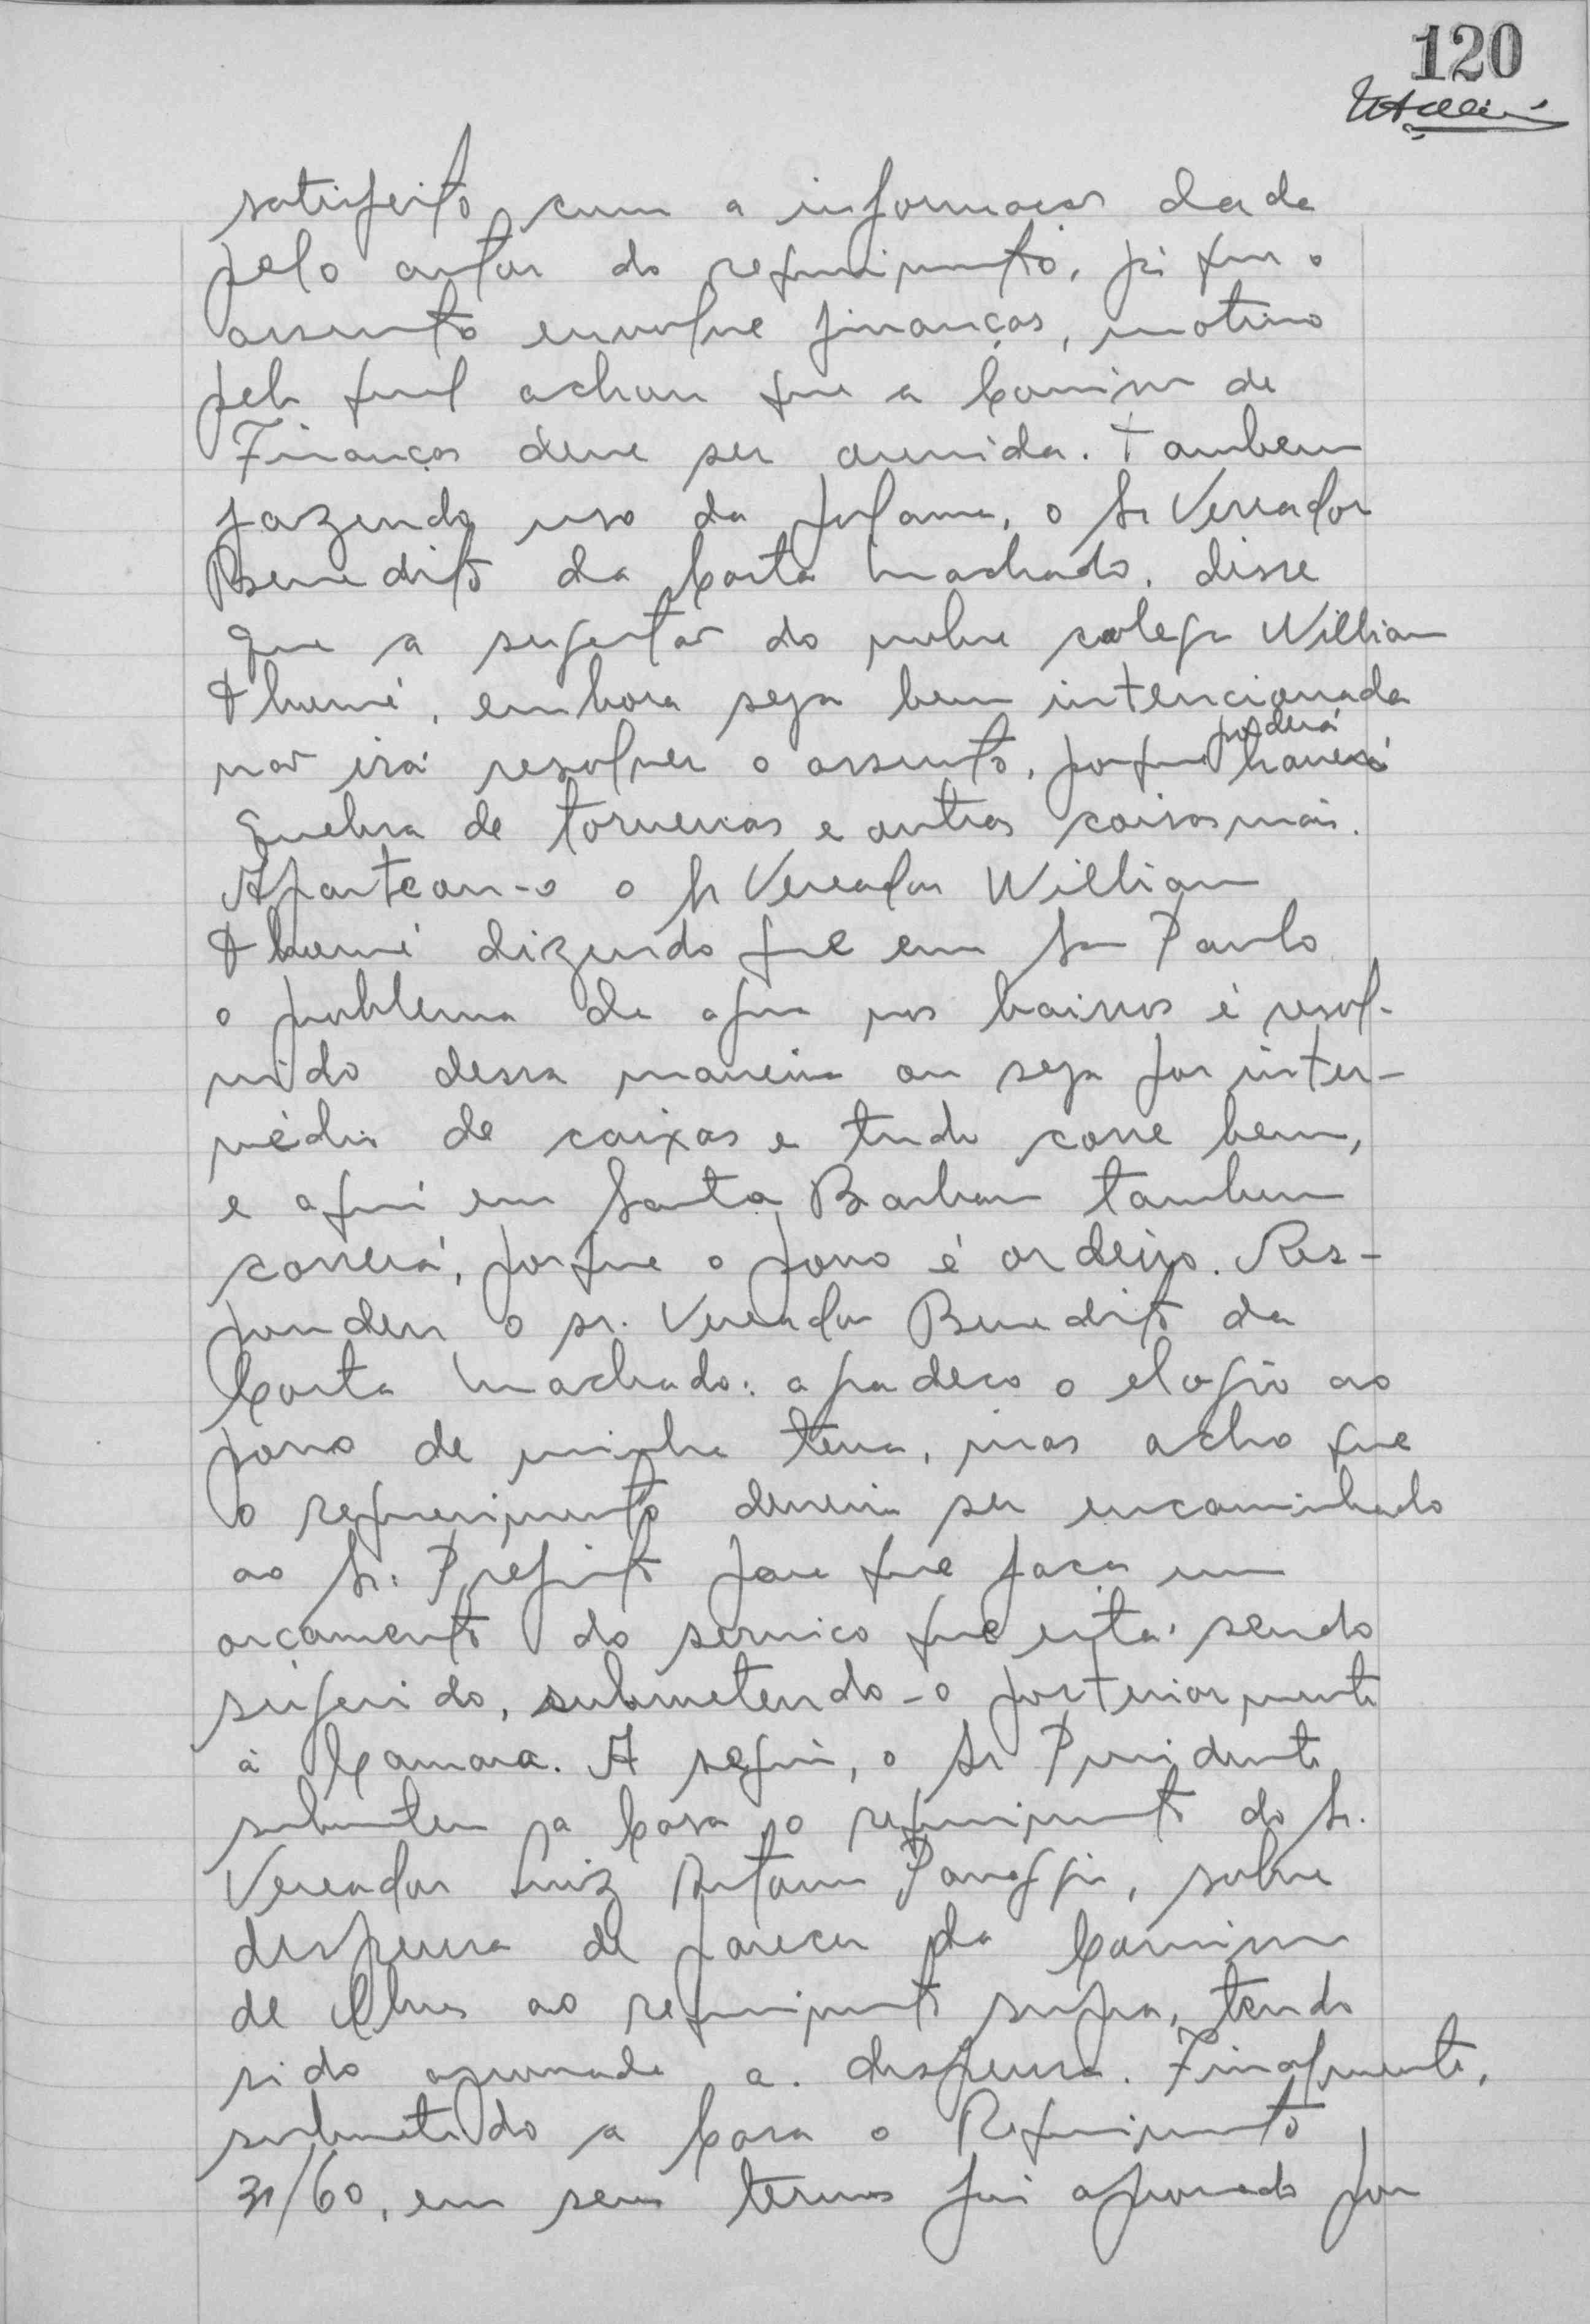 120
satisfeito com a informacao dada
pelo autor do requerimento, já que o
assunto envolve finanças, motivo
pelo qual achou que a Comissao de
Finanças deve ser ouvida. Tambem
fazendo uso da palavra, o Sr Vereador
Benedito da Costa Machado, disse
que a sugestao do nobre colega Willian
, embora seja bem intencionada
nao irá resolver o assunto, porque poderá haver
quebra de torneiras e outras coisas mais.
Aparteou-o o Sr Vereador Willian
dizendo que em Sao Paulo
o problema de agua nos bairros é resol-
vido dessa maneira ou seja por inter-
médio de caixas e tudo corre bem,
e aquí em Santa Barbara tambem
correrá, porque o povo é ordeiro. Res-
pondeu o sr. Vereador Benedito da
Costa Machado: agradeco o elogio ao
povo de minha terra, mas acho que
o requerimento deveria ser encaminhado
ao Sr. Prefeito para que faça um
orçamento do serviço que está sendo
sugerido, submetendo-o posteriormente
á Camara. A seguir, o Sr Presidente
submeteu a Casa o requerimento do Sr.
Vereador Luiz Antonio Panaggio, sobre
dispensa de parecer da Comissao
de Obras ao requerimento supra, tendo
sido aprovada a dispensa. Finalmente,
submetido a Casa o Requerimento
31/60, em seus termos foi aprovado por